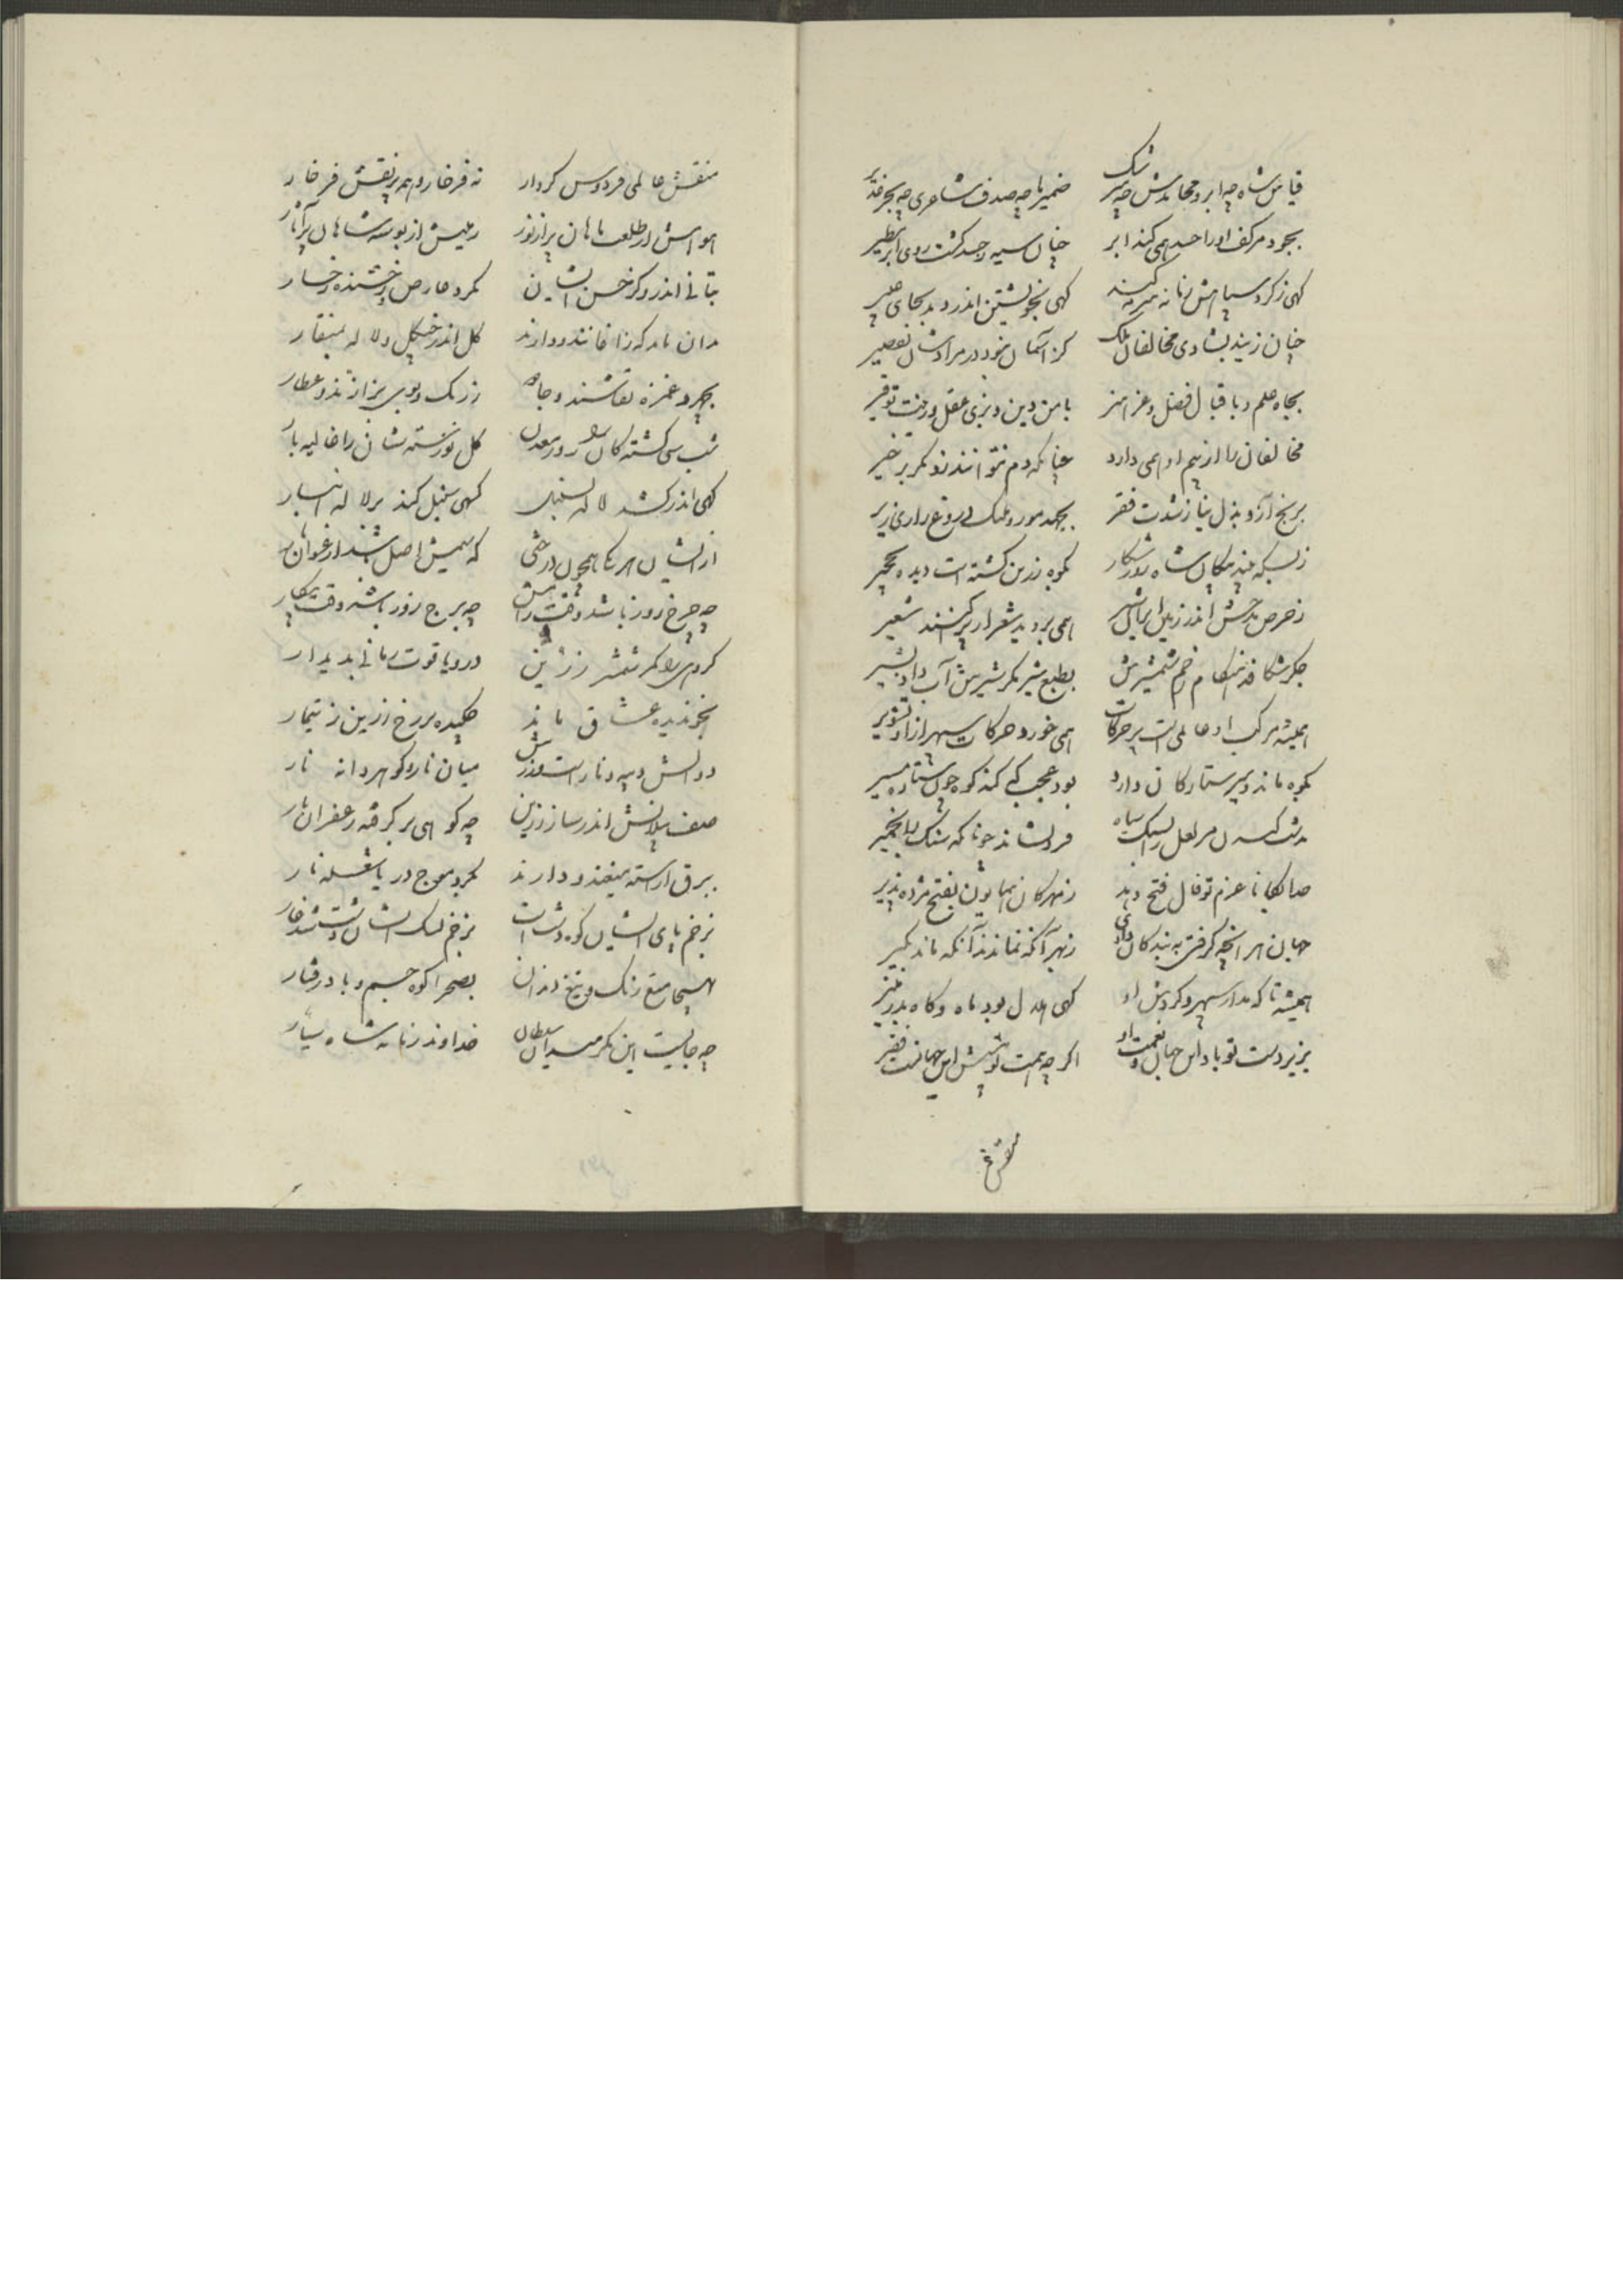 قیاس شاه چه ابر و محامدش چه سرشک ضمیر ما چه صدف شاعری چه بحر غدیر
بجود مر کف او را حسد همی کند ابر چنان سیه ز حسد گشت روی ابر مطیر
کهی ز کرد سپاهش زمانه سرمه کند کهی بخویشتن اندر دمد بجای عبیر
چنان زیند بشادی مخالفان ملک کز آسمان نبود در مرادشان تقصیر
بجاه علم و باقبال فضل و عز هنر بامن دین و بزی عقل و زینت توقیر
مخالفان را از بیم او همی دارد چنانکه دم نتوانند زد مگر بزفیر
برنج آز و بذل نیاز و شدت فقر بجهد مور و دروغ زریر
ز بسکه بیند پیکان شاه روز شکار بکوه زرین گشته است دیده نخجیر
ز حرص مدحش اندر زمین ایرانشهر همی بروید شعر ار پراکنند شعیر
جگر شکافد هنگام زخم شمشیرش بطبع شیر مگر شیرش آب داد بشیر
همیشه مرکب او عالمی است پر حرکات همی خورد حرکات سپهر ازو تشویر
بکوه ماند و سیر ستارگان دارد بود عجب که کند کوه چون ستاره مسیر
مر لعل را بسنگ سیاه فرو نشاند چونانکه سنگ را بخمیر
خدایگانا عزم تو فال فتح دهد ز مهرگان همایون بفتح مژده پذیر
جهان هر آنچه گرفتی به بندگان دادی ز بهر آنکه نماند آنکه ماند گیر
همیشه تا که مدار سپهر و گردش او کهی هلال بود ماه و گاه بدر منیر
بزیر دست تو باد این جهان و نعمت او اگر چه همت تو پیش این جهانست فقیر
منقش عالمی فردوس کردار نه فرخار و همه پر نقش فرخار
هواش از طلعت ماهان پر از نور زمینش از بوسه شاهان پر آثار
بتانی اندرو کز حسن ایشان نگردد عارض رخشنده رخسار
بدان ماند که زاغانند و دارند گل اندر چنگل و لاله بمنقار
بچهر و غمزه نقاشند و جادو ز رنگ و بوی بزازند و عطار
شب گشته کان روز معدن گل نورسته شان را غالیه بار
کهی اندر کشد لاله بسنبل کهی سنبل کند بر لاله انبار
از ایشان هر یکا همچون درختی که سیمش اصل باشد ارغوان بار
چه چرخ روز باشد وقت رامش چه برج روز باشد وقت پیکار
کمر شمشیر زرین درو یاقوت رمانی پدیدار
بخونین دیده عشاق ماند چکیده بر رخ زرین ز تیمار
دوالش و نار است میان نار و گوهر دانه نار
صف پیلانش اندر ساز زرین چه کوهی بر گرفته زعفران بار
ببرق آراسته میغند و دارند بگرد موج دریا شعله نار
ز زخم پای ایشان کوه دشت است ز زخم یشک ایشان دشت شد غار
بهیجا میغ رنگ و تیغ دندان بصحرا کوه جسم و باد رفتار
چه جایست این مگر میدان سلطان خداوند زمانه شاه سیار